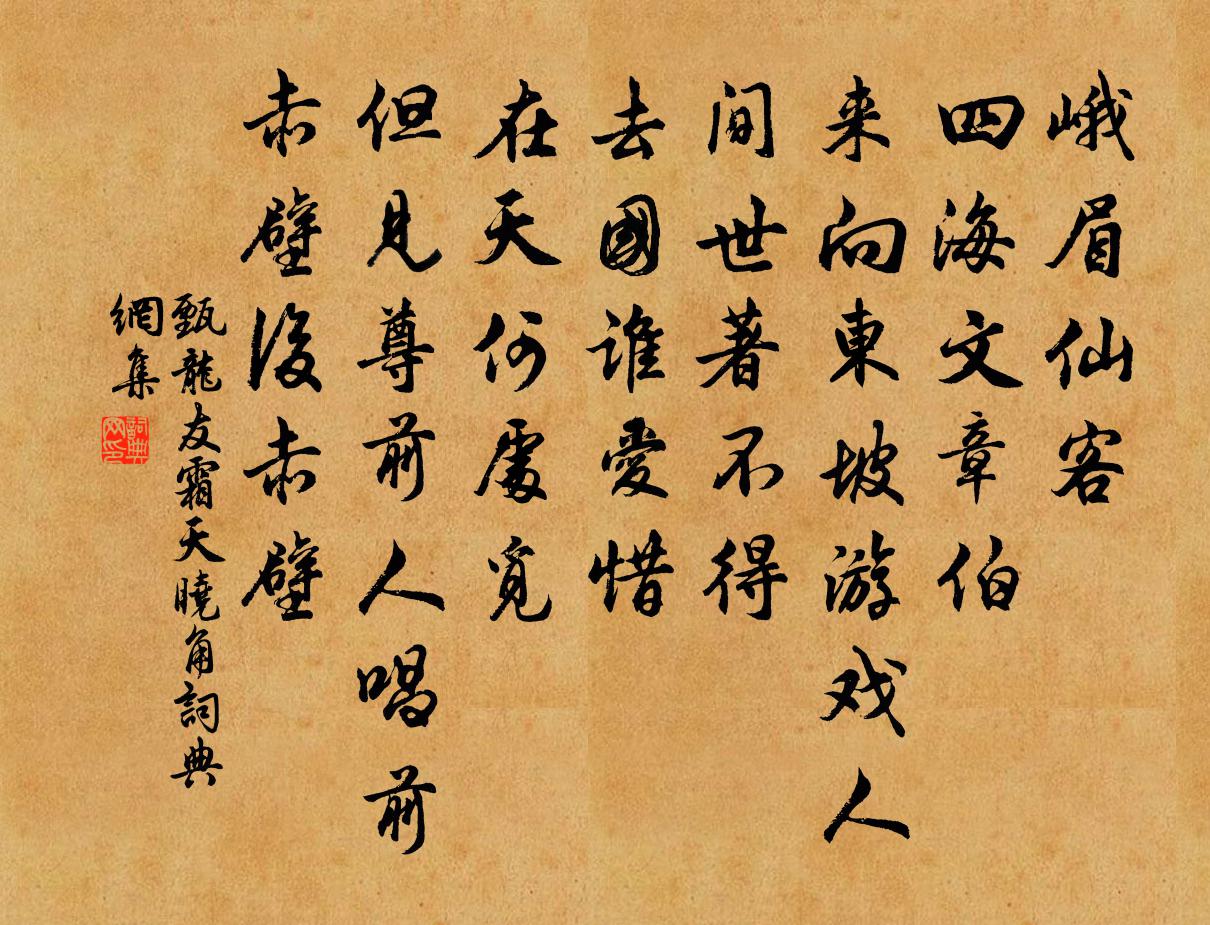 峨眉仙客
四海文章伯
来向東坡游戏人
间世著不得
去國谁愛惜
在天何處覓
但見尊前人唱前
赤壁後赤壁
甄龍友霜天曉角詞典
網集
詞典
网印